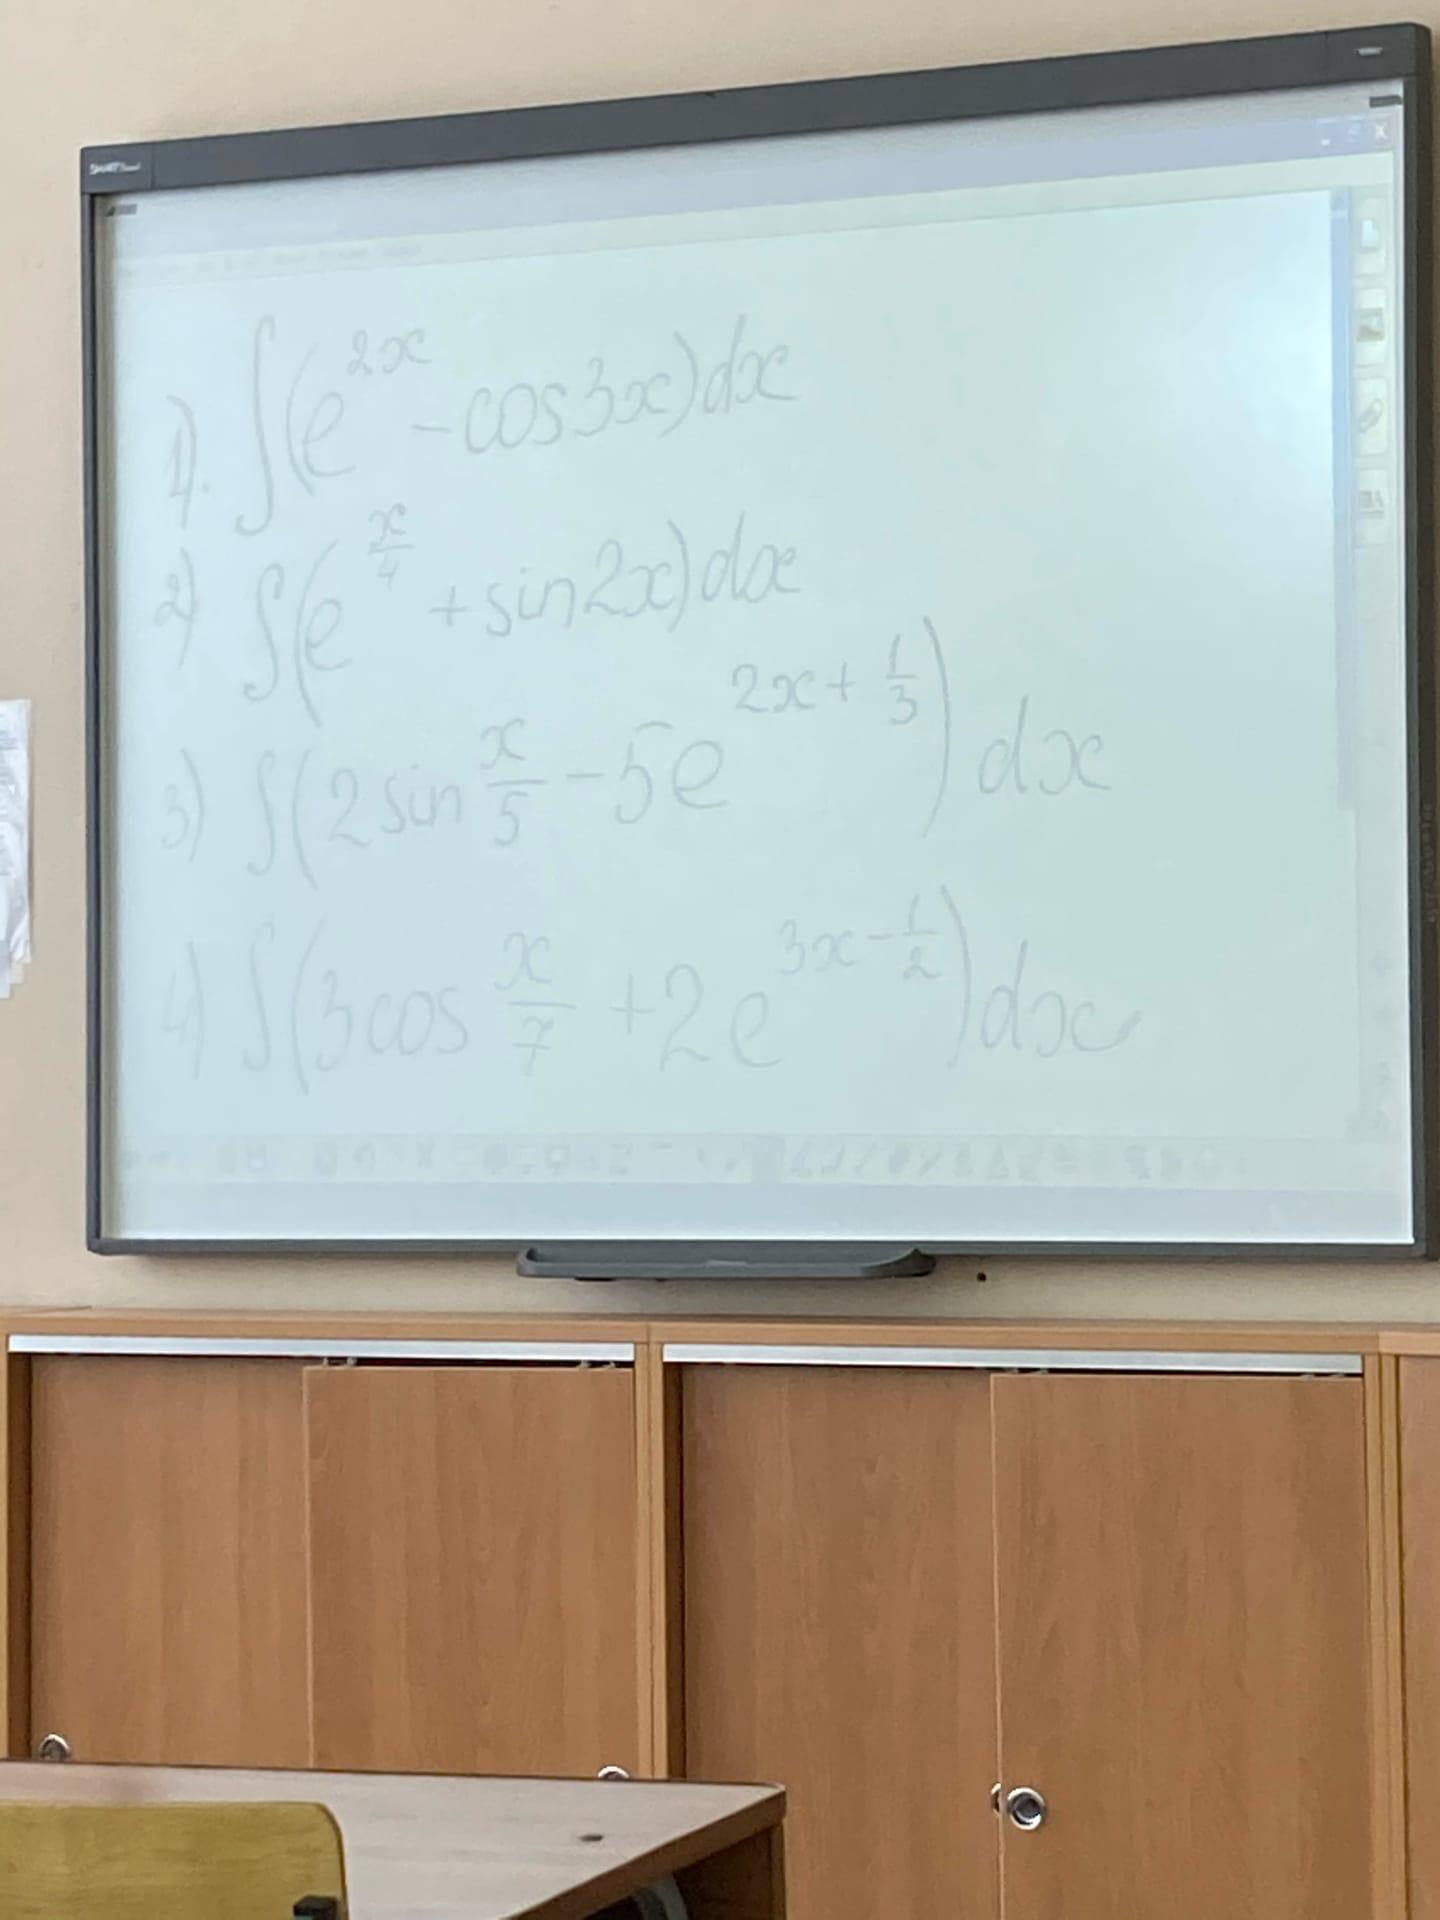 SMART Board
1). ∫(e^{2x} - cos3x)dx
2) ∫(e^{x/4} + sin2x)dx
3) ∫(2sin x/5 - 5e^{2x + 1/3})dx
4) ∫(3cos x/7 + 2e^{3x - 1/2})dx